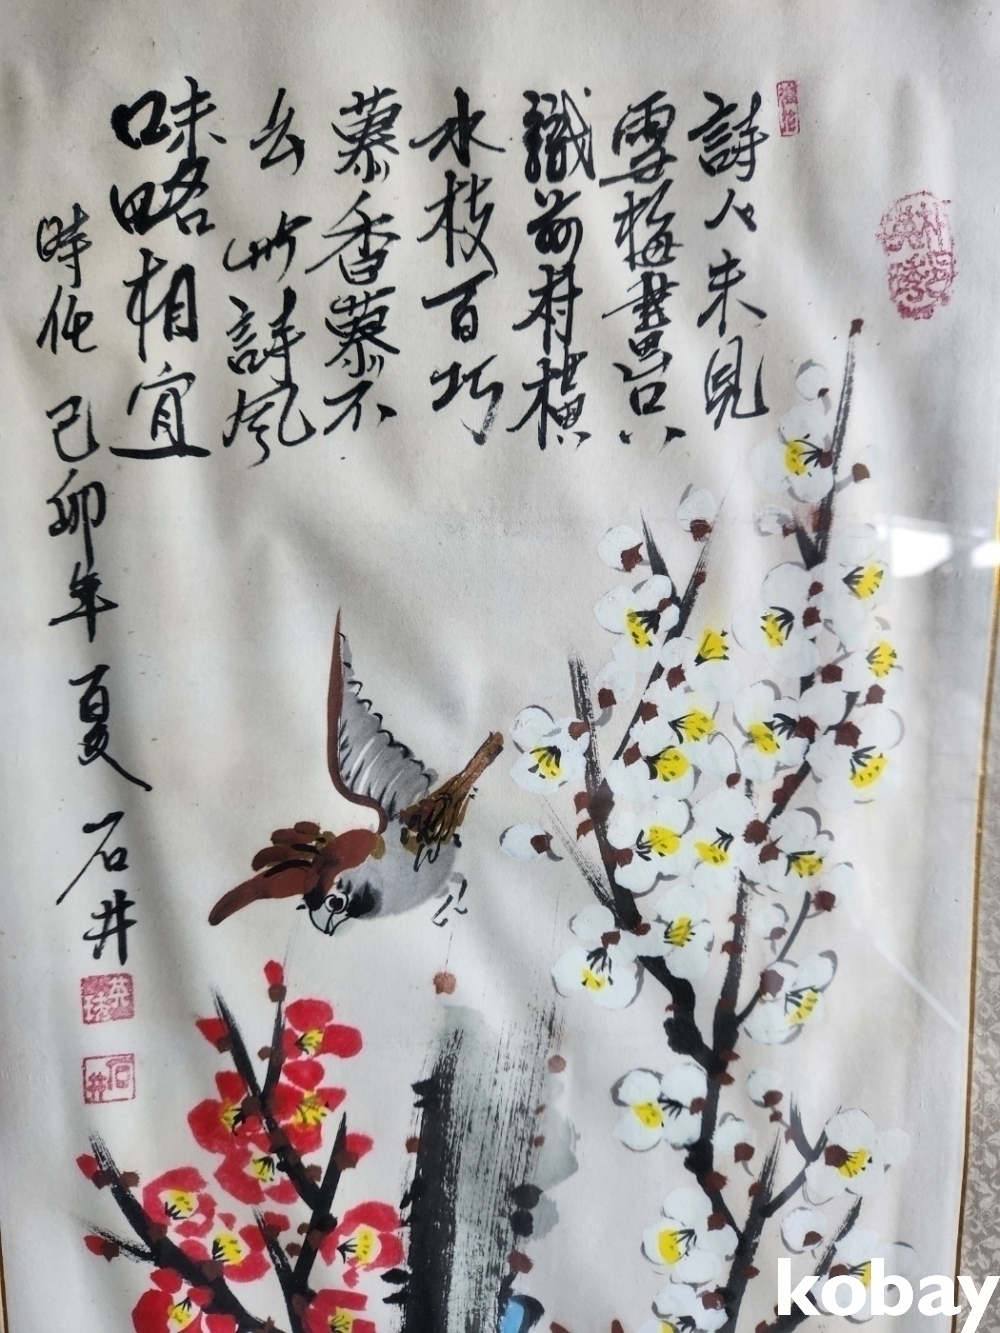 詩人未見
雪梅書只
識前村橫
水枝百巧
慕香慕不
幺竹詩風
味略相宜
時在己卯年夏石井
英珠
石井
kobay